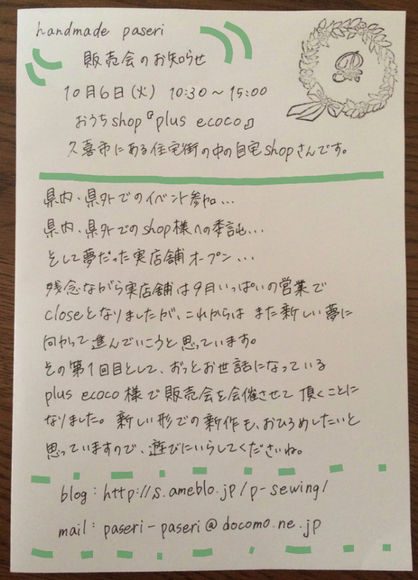 handmade paseri
販売会のお知らせ
10月6日(火) 10:30〜15:00
おうちshop『plus ecoco』
久喜市にある住宅街の中の自宅shopさんです。
県内・県外でのイベント参加...
県内・県外でのshop様への委託...
そして夢だった実店舗オープン...
残念ながら実店舗は9月いっぱいの営業で
closeとなりましたが、これからは また新しい夢に
向かって進んでいこうと思っています。
その第1回目として、ずっとお世話になっている
plus ecoco 様で販売会を開催させて頂くことに
なりました。新しい形での新作も、おひろめしたいと
思っていますので、遊びにいらしてくださいね。
blog : http://s.ameblo.jp/p-sewing/
mail : paseri-paseri@docomo.ne.jp